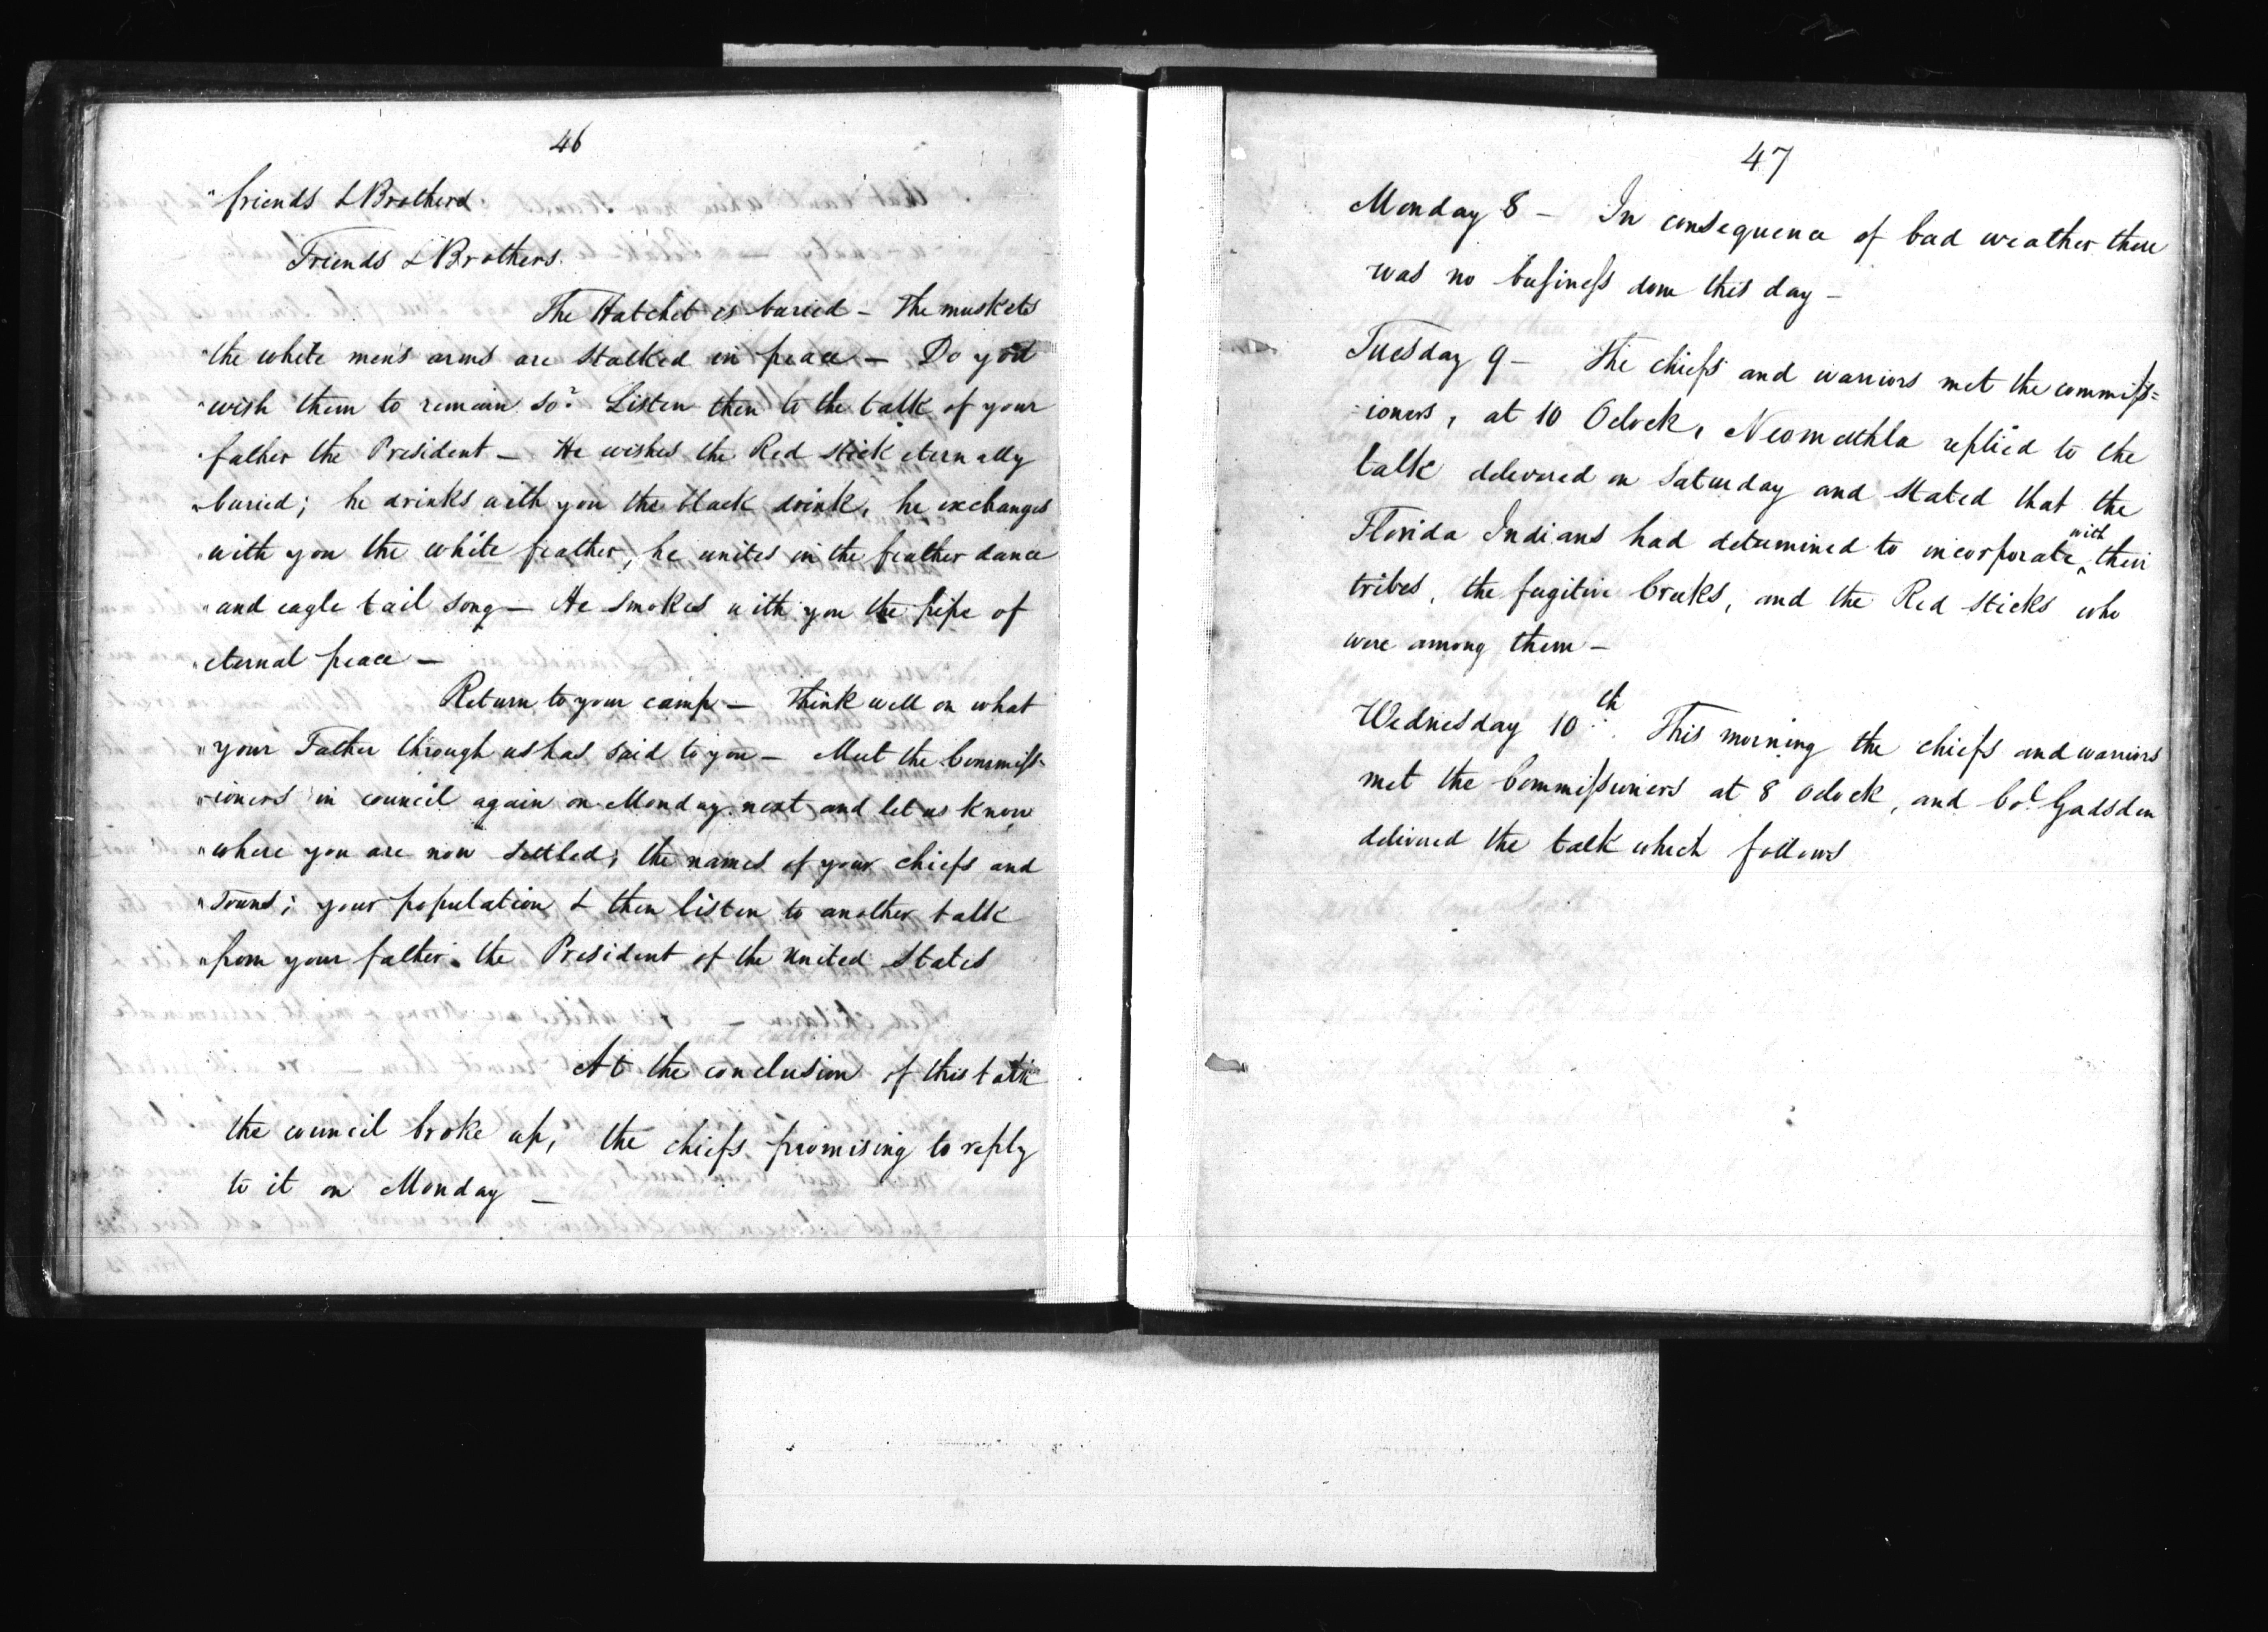 46
" friends & Brothers
Friends & Brothers.
The Hatchet is buried – The muskets
" the white men's arms are stacked in peace – Do you
" wish them to remain so? Listen then to the talk of your
" father the President – He wishes the Red stick eternally
" buried; he drinks with you the black drink, he exchanges
" with you the white feather, he unites in the feather dance
" and eagle tail song – He smokes with you the pipe of
" eternal peace –
Return to your camp – think well on what
" your Father through us has said to you – Meet the Commiss-
" ioners in council again on Monday next and let us know
" where you are now settled; the names of your chiefs and
" Towns; your population & then listen to another talk
" from your father the President of the United States
At the conclusion of this talk
the council broke up, the chiefs promising to reply
to it on Monday –
47
Monday 8 – In consequence of bad weather there
was no business done this day –
Tuesday 9 – The chiefs and warriors met the commiss=
-ioners, at 10 Oclock, Neomathla replied to the
talk delevered on Saturday and stated that the
Florida Indians had determined to incorporate ^with their
tribes, the fugitive Creeks, and the Red Sticks who
were among them –
Wednesday 10th. This morning the chiefs and warriors
met the Commissioners at 8 oclock, and Col. Gadsden
delivered the talk which follows